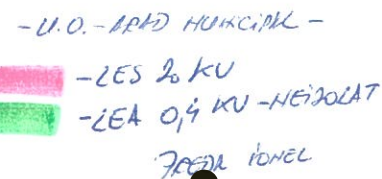 -U.O.-ARAD MUNICIPAL-
-LES 20 KV
-LEA 0,4 KV-NEIZOLAT
IONEL